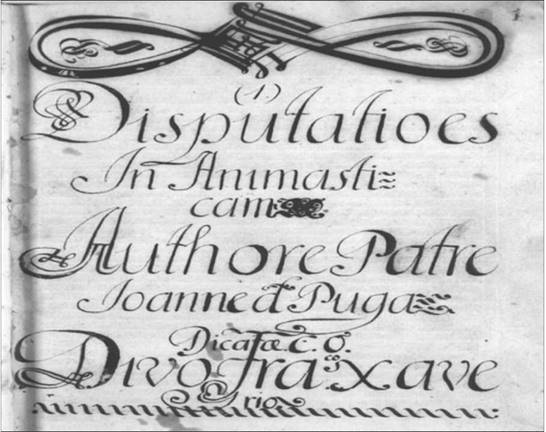 (1)
Disputatioes
In Animasti=
cam
Authore Patre
Ioanne d Puga
Dicatæ. C. O.
Divo Fra.co Xave
rio